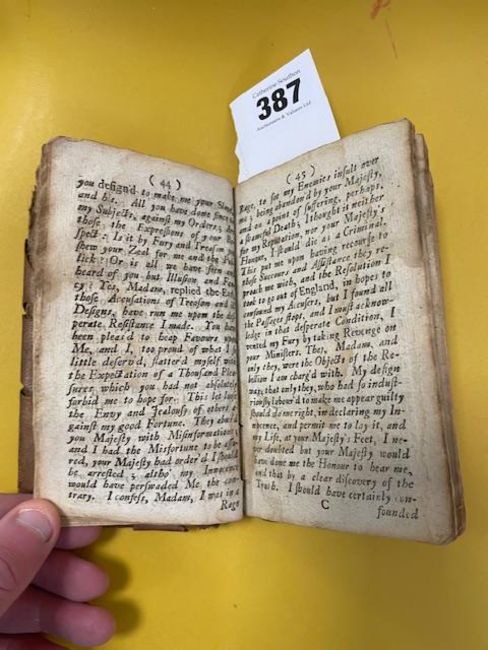 Catherine Southon
387
Auctioneers & Valuers Ltd
( 44 )
you design'd to make me your
and his. All you have done since
my Subjects, against my Orders,
those the Expressions of your
spect? Is it by Fury and Treason
shew your Zeal for me and the
lick? Or is all we have seen
heard of you but Illusion, and
cy? Yes, Madam, replied the
those Accusations of Treason and
Designs, have run me upon the
perate Resistance I made. You have
been pleas'd to heap Favours upon
Me, and I, too proud of what I
little deserv'd, flatter'd myself with
the Expectation of a Thousand Plea-
sures which you had not absolutely
forbid me to hope for. This let loose
the Envy and Jealousy of others a-
gainst my good Fortune. They abus'd
you Majesty with Misinformations
and I had the Misfortune to be assu-
red, your Majesty had order'd I should
be arrested; altho' my Innocence
would have perswaded Me the con-
trary. I confess, Madam, I was in a
Rage
( 45 )
Rage, to see my Enemies insult over
me; being abandon'd by your Majesty,
and on a point of suffering, perhaps,
a shameful Death; I thought it neither
for my Reputation, nor your Majesty's
Honour, I should die as a Criminal.
This put me upon having recourse to
those Succours and Assistance they re-
proach me with, and the Resolution I
took to go out of England, in hopes to
confound my Accusers, but I found all
the Passages stopt, and I must acknow-
ledge in that desperate Condition, I
vented my Fury by taking Revenge on
your Ministers. They, Madam, and
only they, were the Objects of the Re-
bellion I am charg'd with. My design
was, that only they, who had so indust-
riously labour'd to make me appear guilty
should do me right, in declaring my In-
nocence, and permit me to lay it, and
my Life, at your Majesty's Feet, I ne-
ver doubted but your Majesty would
have done me the Honour to hear me,
and that by a clear discovery of the
Truth. I should have certainly con-
C
founded